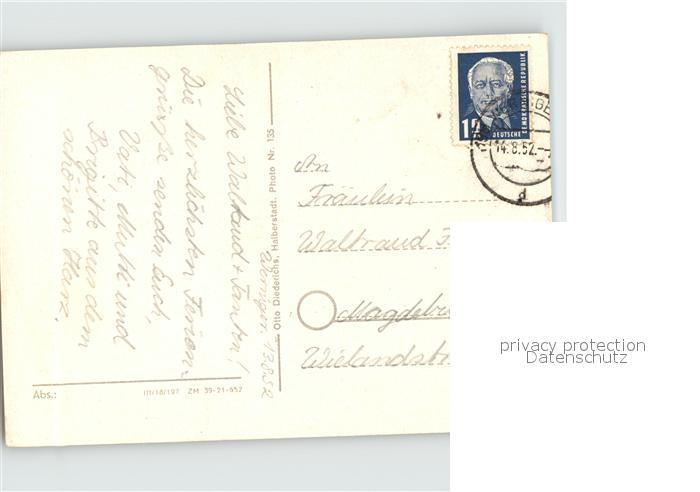 Wernigr. 13.8.52
Liebe Waltraud + Tanten!
Die herzlichsten Ferien-
grüße senden Euch,
Vati, Mutti und
Brigitte aus dem
schönen Harz.
Abs.:
III/18/197 ZM 39-21-657
Otto Diederichs, Halberstadt. Photo Nr. 135
12
DEUTSCHE
DEMOKRATISCHE REPUBLIK
14.8.52.
d
An
Fräulein
Waltraud
Magdebu
Wielandstr
privacy protection
Datenschutz